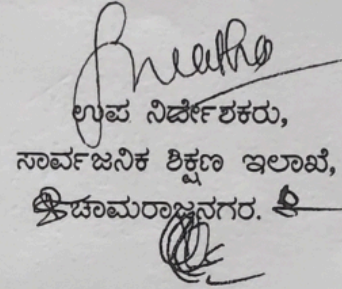 ಉಪ ನಿರ್ದೇಶಕರು,
ಸಾರ್ವಜನಿಕ ಶಿಕ್ಷಣ ಇಲಾಖೆ,
ಚಾಮರಾಜನಗರ.